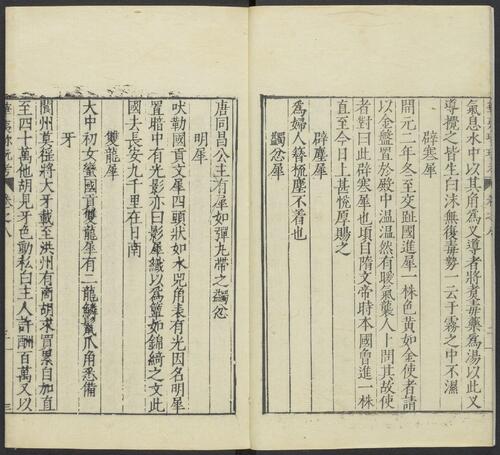 氣息水中以其角為叉導者將煑毒藥為湯以此叉
導攪之皆生白沫無復毒勢一云于霧之中不濕
辟寒犀
開元二年冬至交趾國進犀一株色黃如金使者請
以金盤置於殿中温温然有暖氣襲人上問其故使
者對曰此辟寒犀也頃自隋文帝時本國曾進一株
直至今日上甚恱原賜之
辟塵犀
為婦人簮梳塵不着也
蠲忿犀
唐同昌公主有犀如彈丸帶之蠲忿
明犀
吠勒國貢文犀四頭狀如水兕角表有光因名明犀
置暗中有光影亦曰影犀織以為簟如錦綺之文此
國去長安九千里在日南
雙龍犀
大中初女蠻國貢雙龍犀有二龍鱗鬣爪角悉備
牙
閬州莫徭將大牙載至洪州有商胡求買累自加直
至四十萬他胡見牙色動私白主人許酬百萬又以